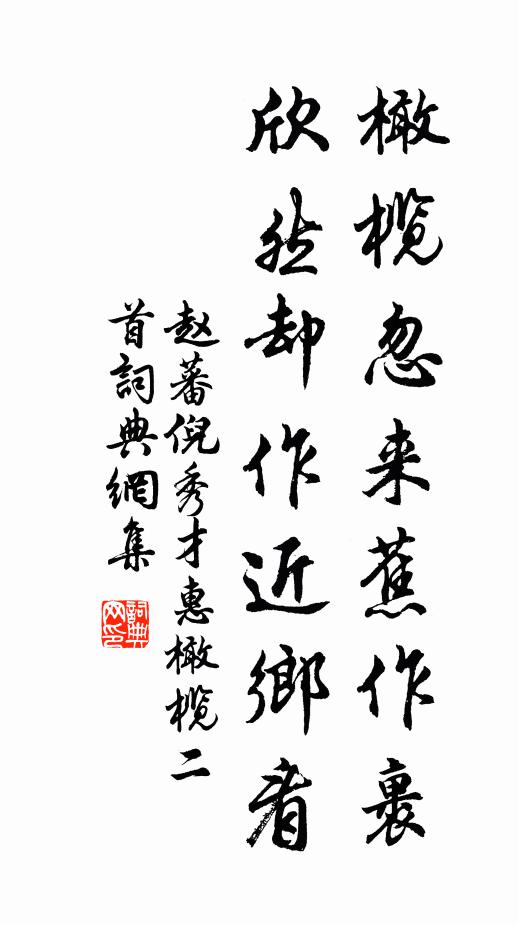 橄榄忽来蕉作裹
欣然却作近鄉看
赵蕃倪秀才惠橄榄二
首詞典網集
詞典网印